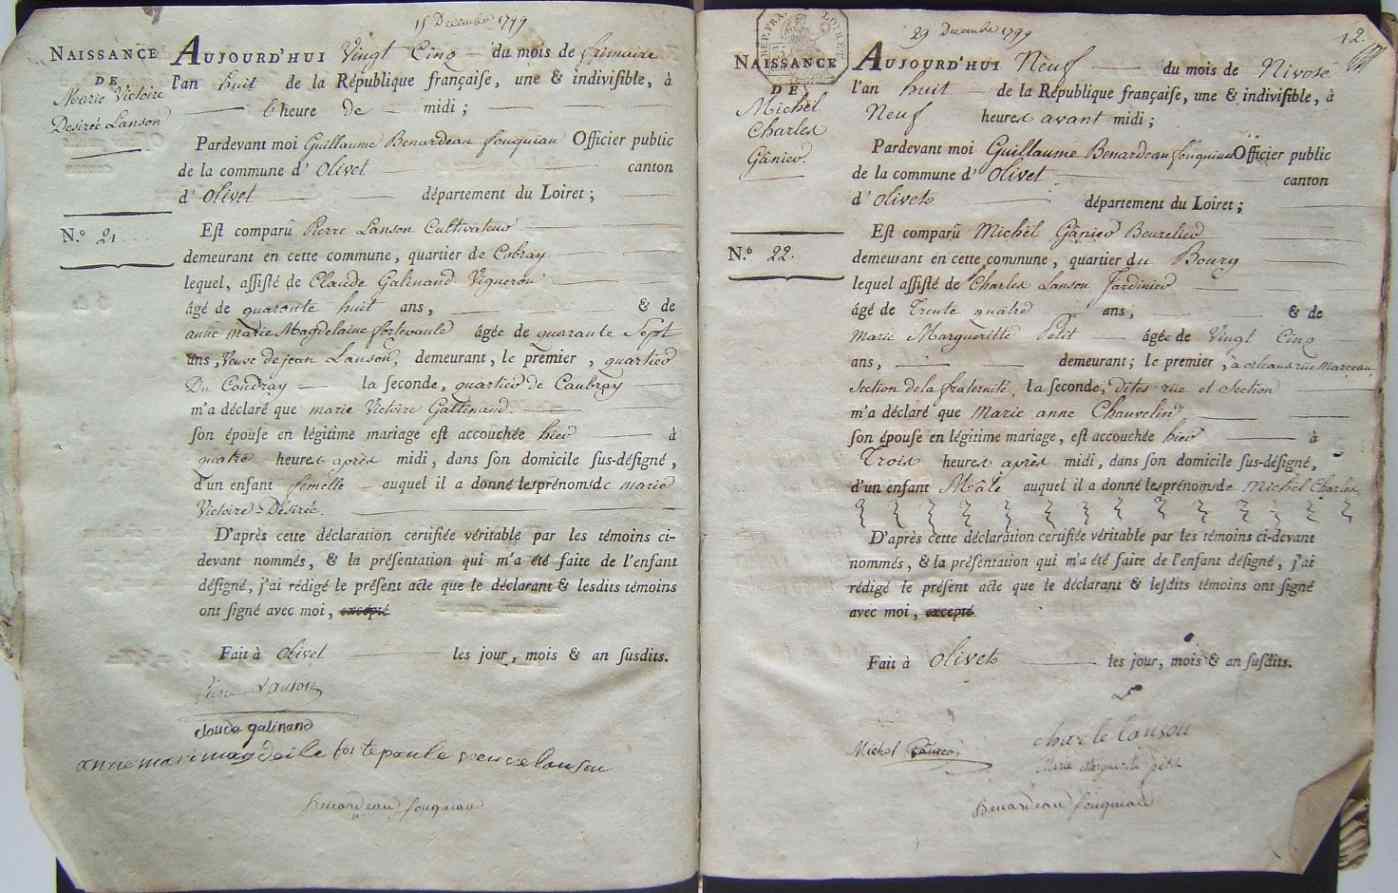 15 Decembre 1799
NAISSANCE
DE
Marie Victoire
Desirée Lanson
N.º 21
AUJOURD'HUI Vingt Cinq du mois de frimaire
l'an huit de la République françaiſe, une & indiviſible, à
l'heure de midi ;
Pardevant moi Guillaume Benardeau fouquiau Officier public
de la commune d' Olivet canton
d' Olivet département du Loiret ;
Eſt comparu Pierre Lanson Cultivateur
demeurant en cette commune, quartier de Cobray
lequel, aſſiſté de Claude Galinand Vigneron
âgé de quarante huit ans, & de
anne marie Magdelaine fortepaule âgée de quarante Sept
ans, Veuve de jean Lanson, demeurant, le premier, quartier
Du Coudray la ſeconde, quartier de Caubray
m'a déclaré que marie Victoire Gallinand
ſon épouſe en légitime mariage eſt accouchée hier à
quatre heures après midi, dans ſon domicile ſus-déſigné,
d'un enfant femelle auquel il a donné les prénoms de marie
Victoire-Désirée.
D'après cette déclaration certifiée véritable par les témoins ci-
devant nommés, & la préſentation qui m'a été faite de l'enfant
déſigné, j'ai rédigé le préſent acte que le déclarant & leſdits témoins
ont ſigné avec moi, excepté
Fait à Olivet les jour, mois & an ſuſdits.
Pierre Lanson
claude galinand
anne mari magdeile fortepaule veuve lanson
Benardeau fouquiau
29 Decembre 1799
12
NAISSANCE
DE
Michel
Charles
Gânier
N.º 22.
AUJOURD'HUI Neuf du mois de Nivose
l'an huit de la République françaiſe, une & indiviſible, à
Neuf heures avant midi ;
Pardevant moi Guillaume Benardeau fouquiau Officier public
de la commune d' Olivet canton
d' Olivet département du Loiret ;
Eſt comparu Michel Gânier Beurelier
demeurant en cette commune, quartier du Bourg
lequel aſſiſté de Charles Lanson Jardinier
âgé de Trente quatre ans, & de
Marie Margueritte Petit âgée de Vingt Cinq
ans, demeurant; le premier, à orleans rue Marceau
Section de la fraternité, la ſeconde, dites rue et Section
m'a déclaré que Marie anne Chauvelin
ſon épouſe en légitime mariage, eſt accouchée hier à
Trois heures après midi, dans ſon domicile ſus-déſigné,
d'un enfant Mâle auquel il a donné les prénoms de Michel Charles
D'après cette déclaration certifiée véritable par les témoins ci-devant
nommés, & la préſentation qui m'a été faite de l'enfant déſigné, j'ai
rédigé le préſent acte que le déclarant & leſdits témoins ont ſigné
avec moi, excepté
Fait à Olivet les jour, mois & an ſuſdits.
Michel Gânier
charle lanson
Marie Marguerite petit
Benardeau fouquiau